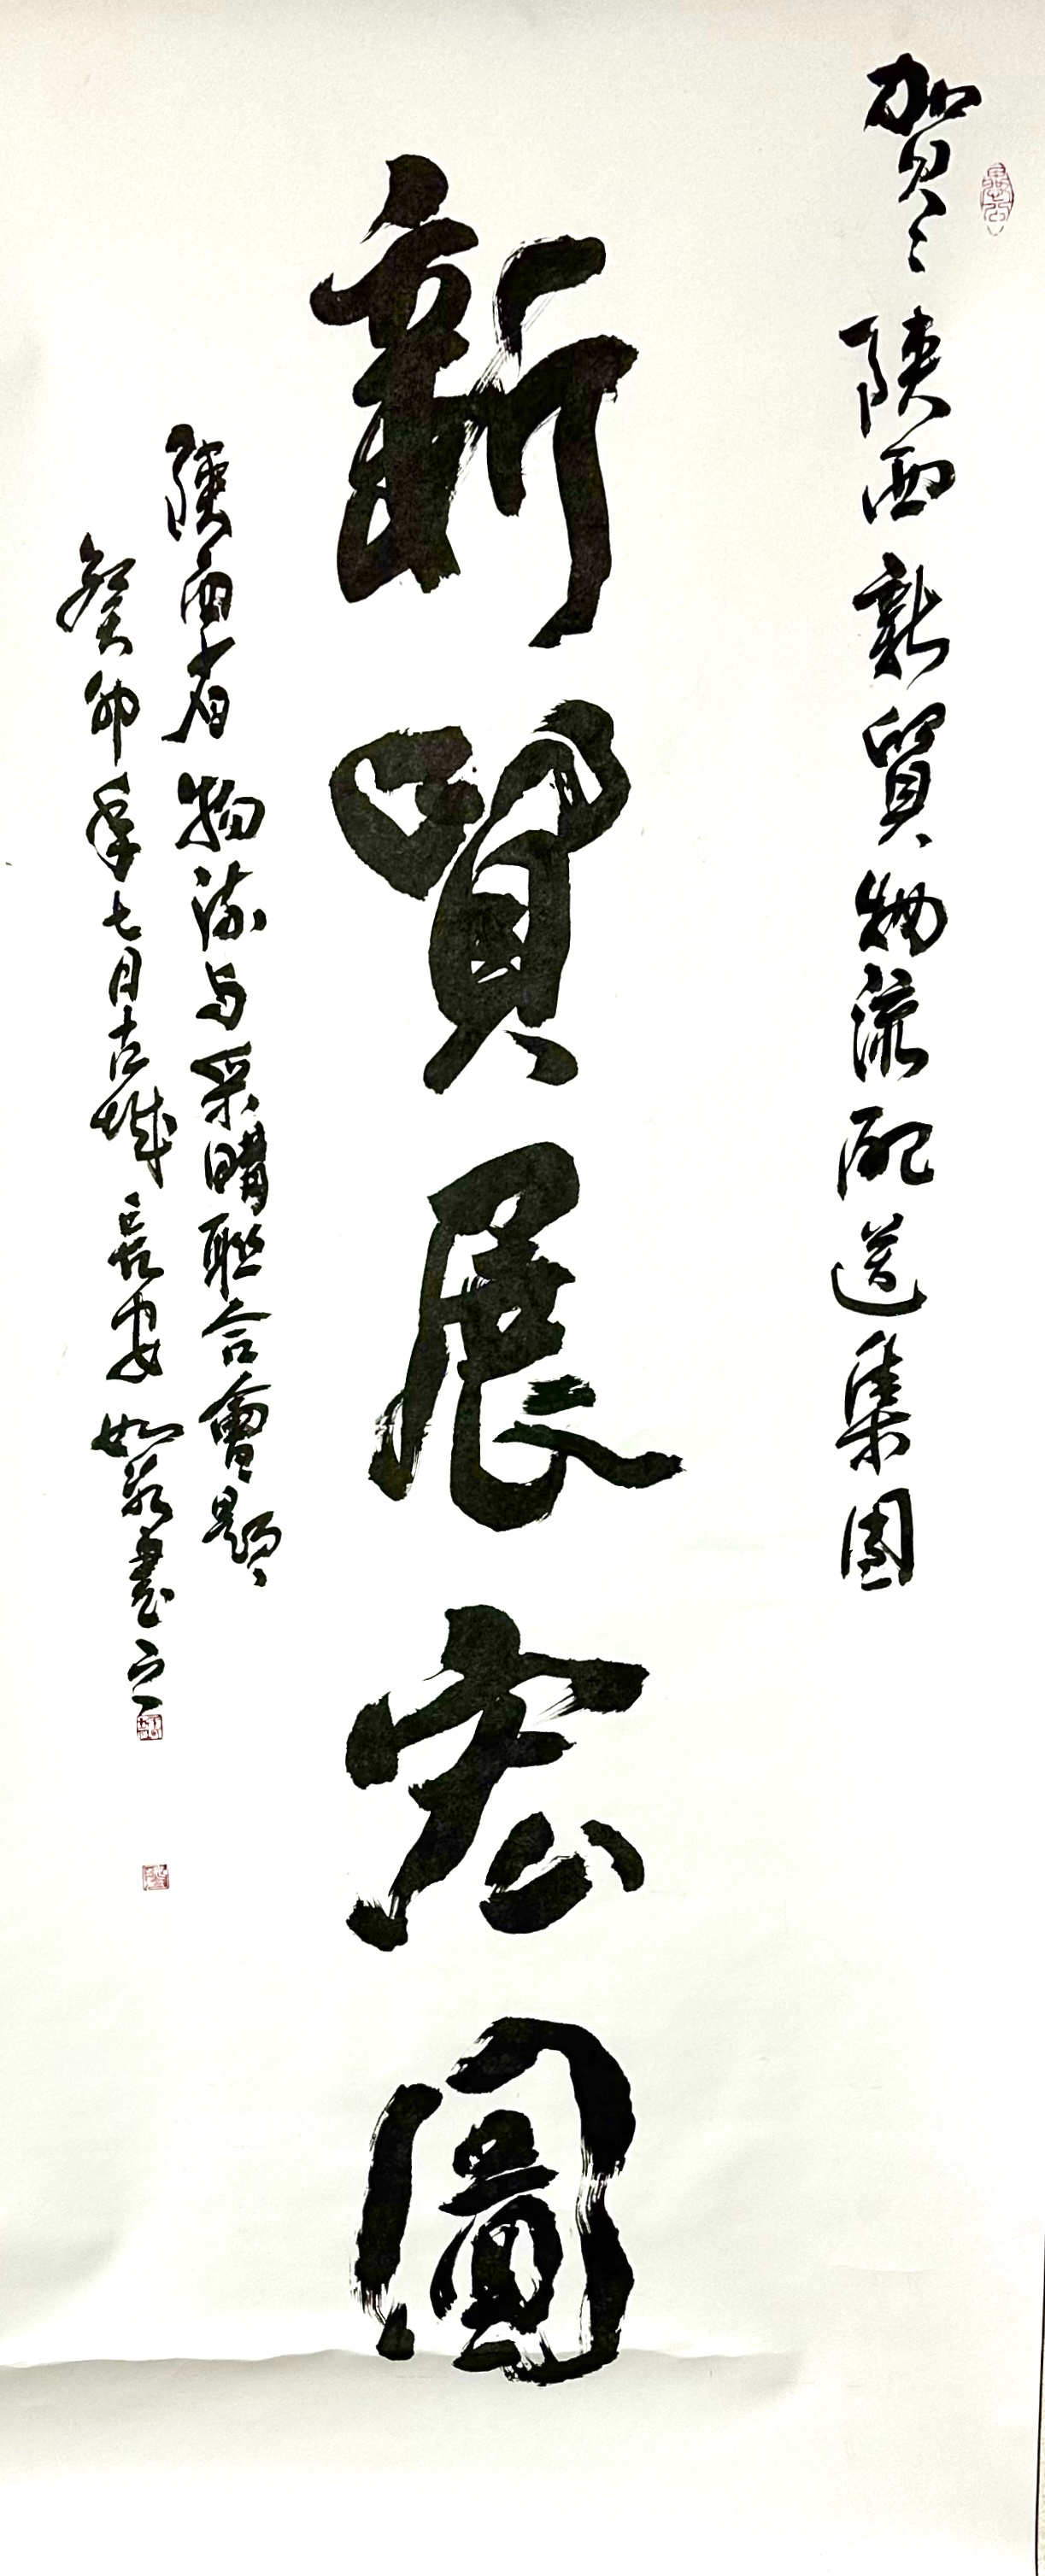 賀陕西新貿物流配送集團
新貿展宏圖
陕西省物流与采購聯合會題
癸卯年七月古城長安如泉書之